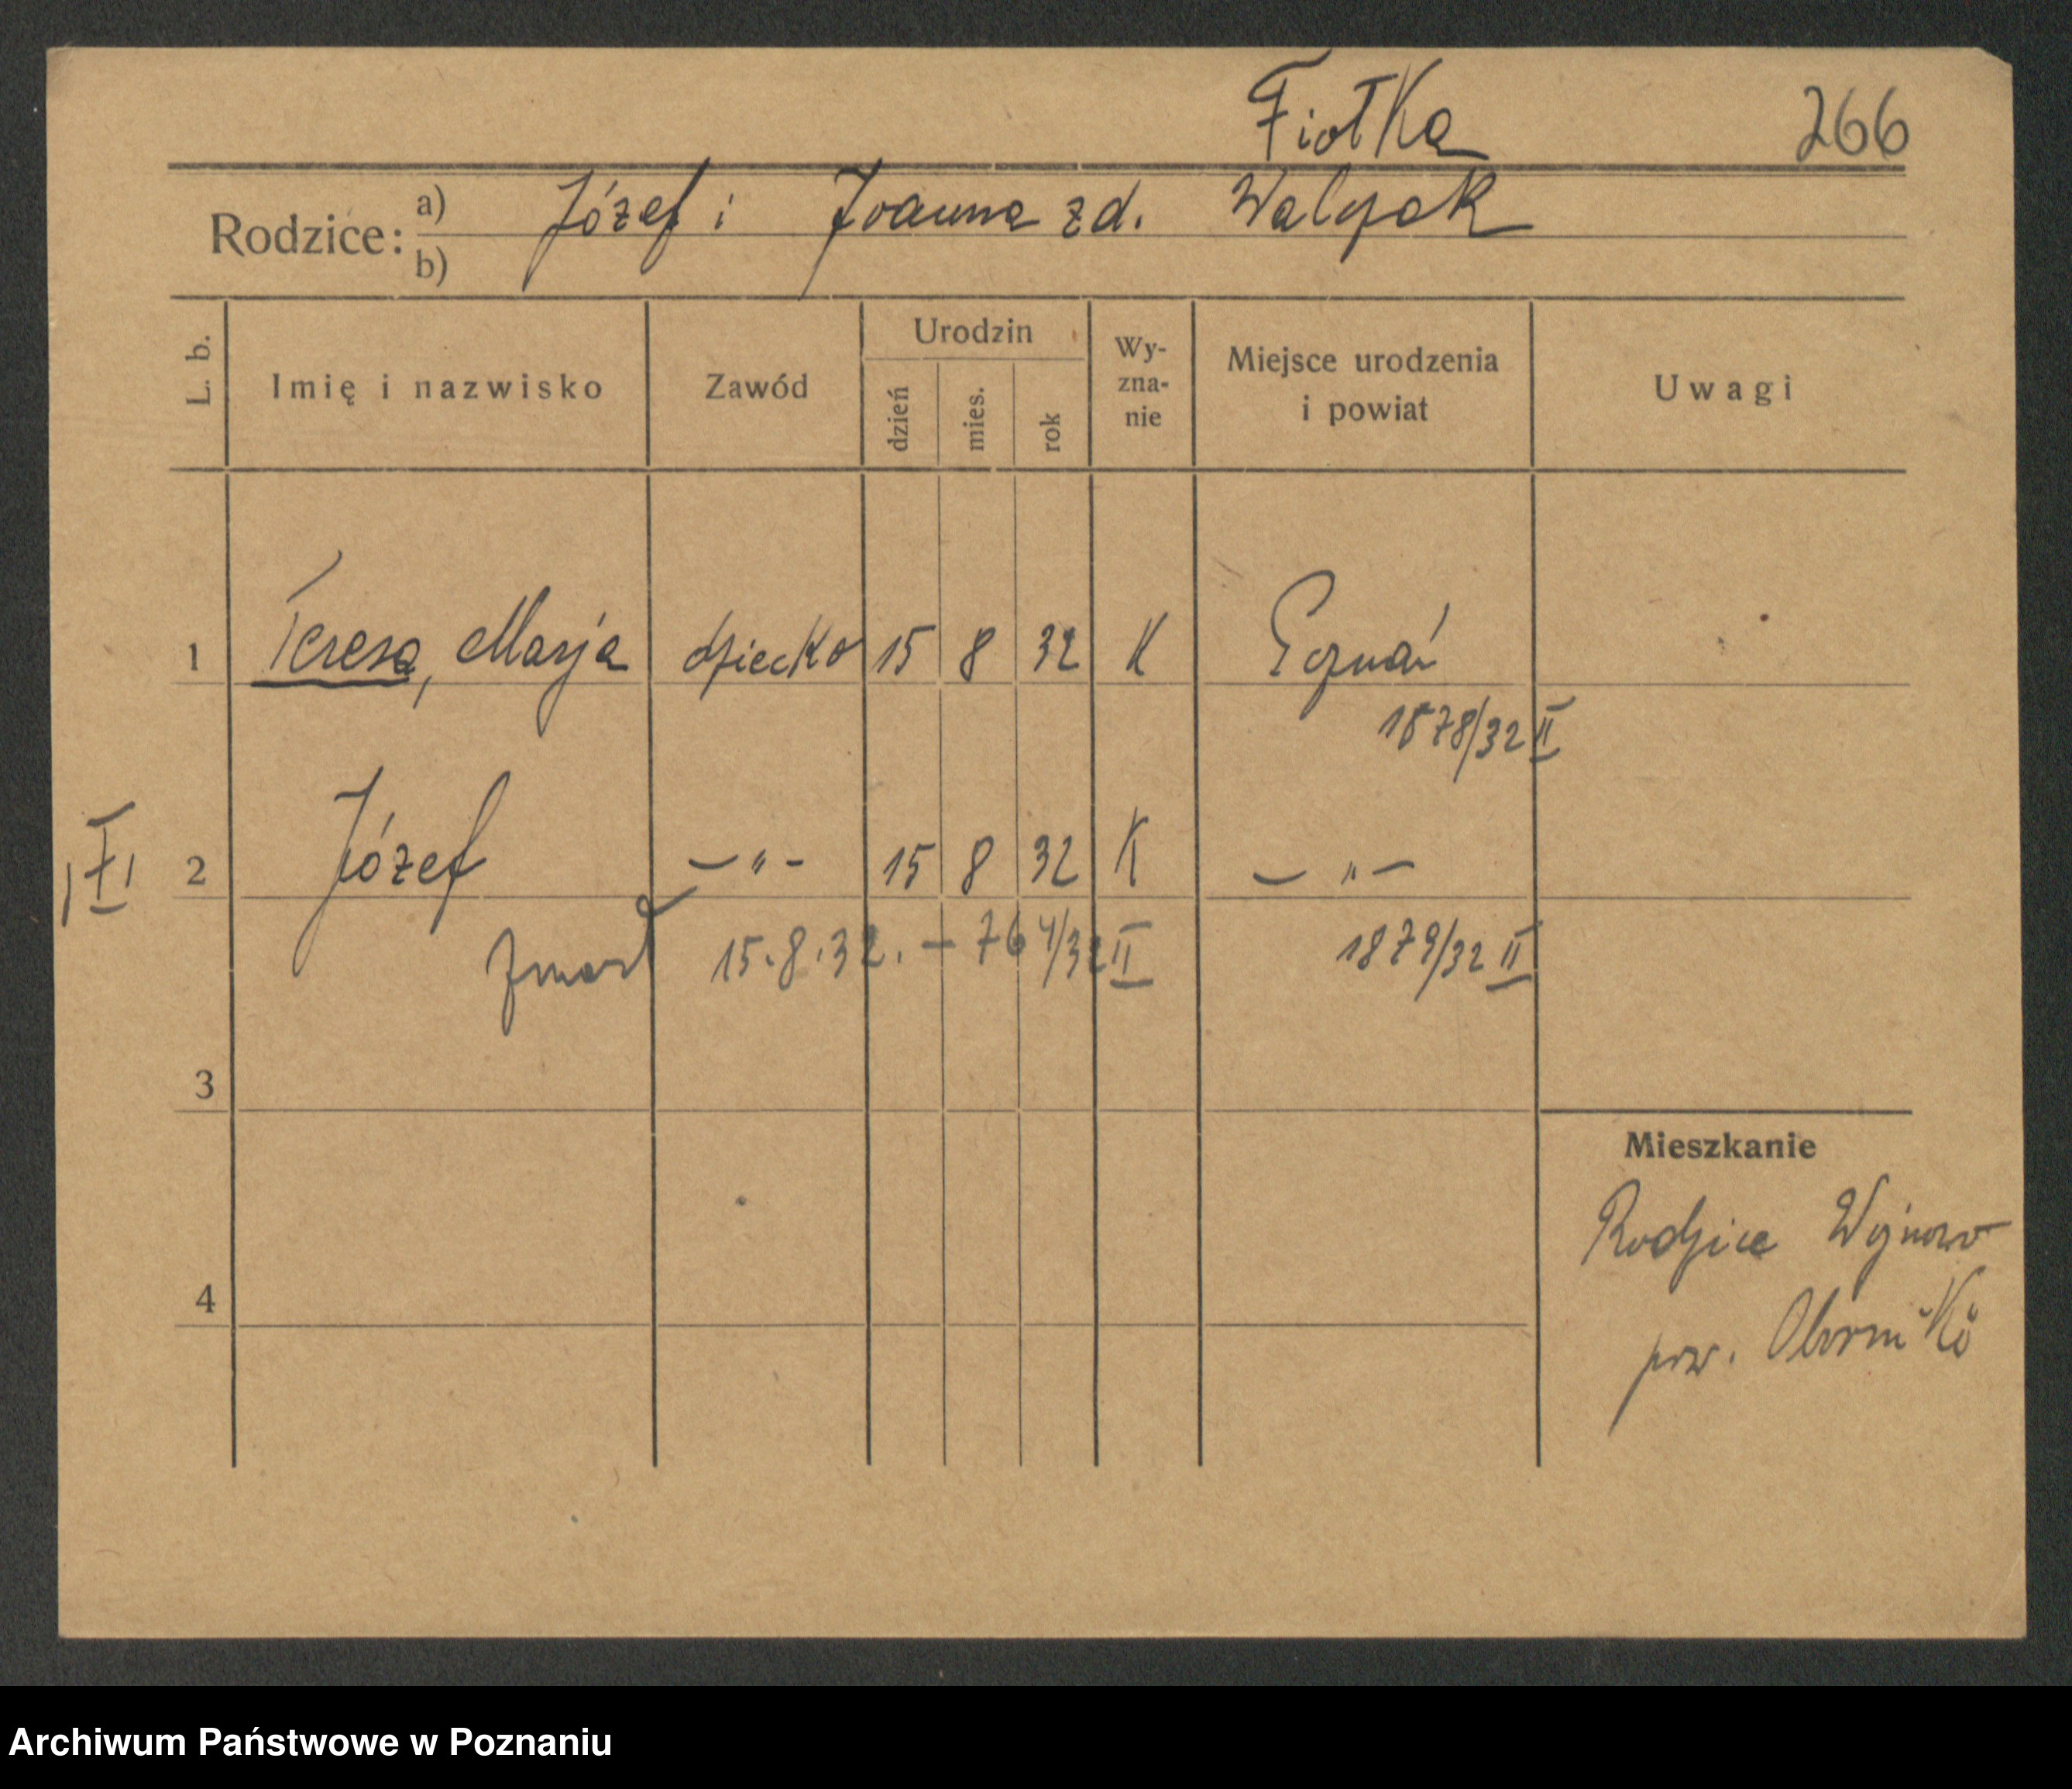 Fiołka 266
Rodzice: a) Józef i Joanna z d. Walczak
b)
L. b. Imię i nazwisko Zawód Urodzin dzień mies. rok Wy-zna-nie Miejsce urodzenia i powiat Uwagi
1 Teresa, Marja dziecko 15 8 32 K Poznań
1878/32 II
2 Józef — " — 15 8 32 K — " —
zmarł 15.8.32. – 764/32 II 1879/32 II
3
Mieszkanie
Rodzice Wojnowo
4
pow. Oborniki
Archiwum Państwowe w Poznaniu